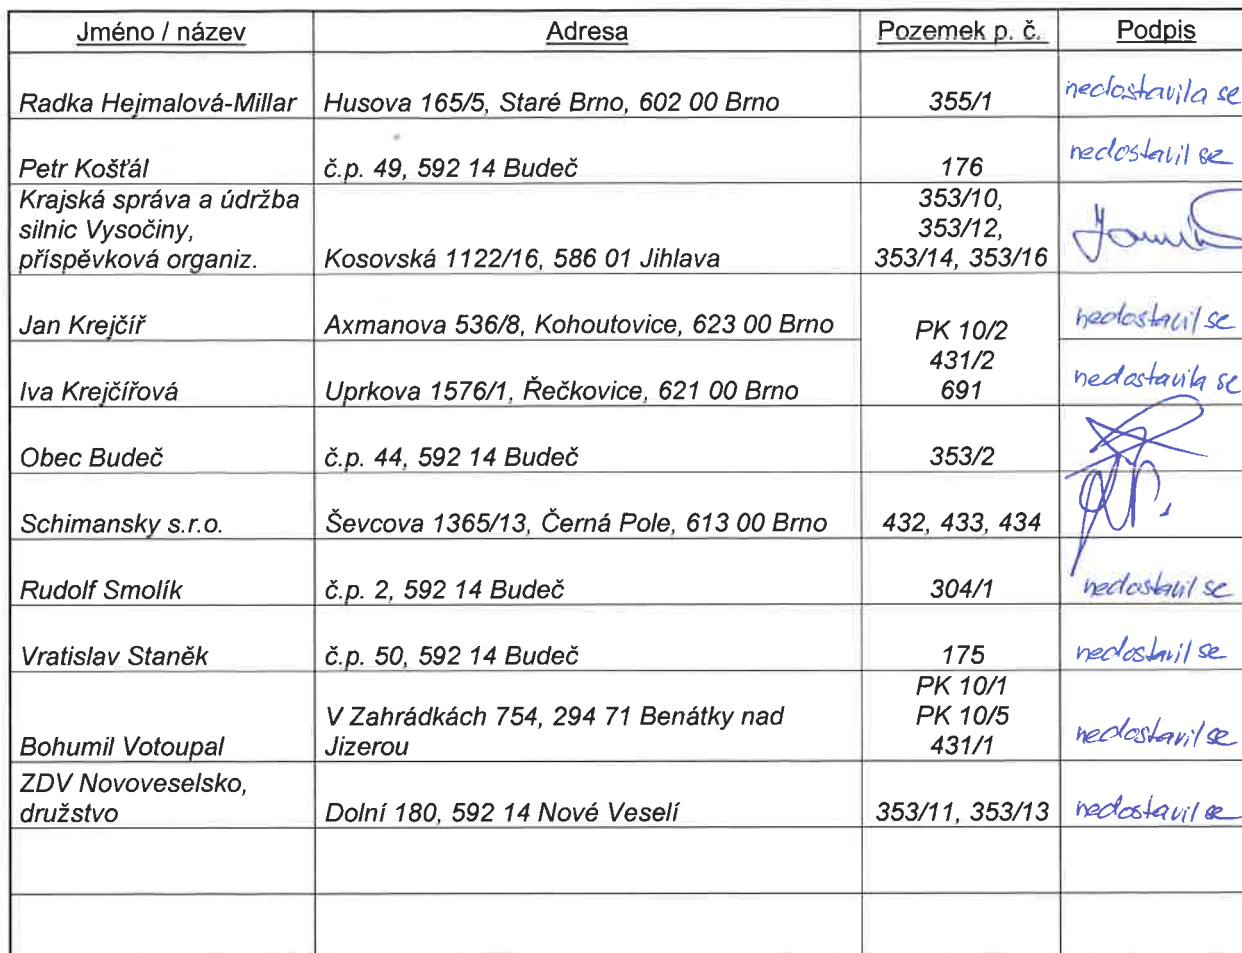 Jméno / název Adresa Pozemek p. č. Podpis
Radka Hejmalová-Millar Husova 165/5, Staré Brno, 602 00 Brno 355/1 nedostavila se
Petr Košťál č.p. 49, 592 14 Budeč 176 nedostavil se
Krajská správa a údržba
silnic Vysočiny,
příspěvková organiz. Kosovská 1122/16, 586 01 Jihlava
353/10,
353/12,
353/14, 353/16
Jan Krejčíř Axmanova 536/8, Kohoutovice, 623 00 Brno nedostavil se
Iva Krejčířová Uprkova 1576/1, Řečkovice, 621 00 Brno nedostavila se
PK 10/2
431/2
691
Obec Budeč č.p. 44, 592 14 Budeč 353/2
Schimansky s.r.o. Ševcova 1365/13, Černá Pole, 613 00 Brno 432, 433, 434
Rudolf Smolík č.p. 2, 592 14 Budeč 304/1 nedostavil se
Vratislav Staněk č.p. 50, 592 14 Budeč 175 nedostavil se
Bohumil Votoupal
V Zahrádkách 754, 294 71 Benátky nad
Jizerou
PK 10/1
PK 10/5
431/1
nedostavil se
ZDV Novoveselsko,
družstvo Dolní 180, 592 14 Nové Veselí 353/11, 353/13 nedostavil se